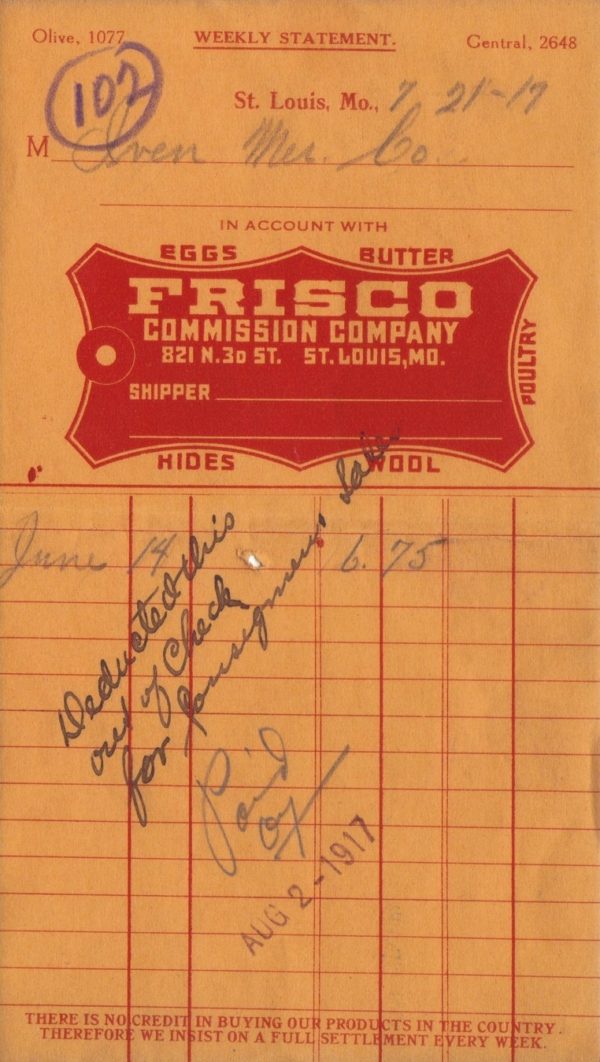 Olive, 1077 WEEKLY STATEMENT. Central, 2648
102
St. Louis, Mo., 7 21-17
M Iven Mer. Co.
IN ACCOUNT WITH
EGGS BUTTER
FRISCO
COMMISSION COMPANY
821 N. 3D ST. ST. LOUIS, MO.
SHIPPER
POULTRY
HIDES WOOL
June 14 6.75
Deducted this
out of Check
for Consignment Sales
Paid
AUG 2-1917
THERE IS NO CREDIT IN BUYING OUR PRODUCTS IN THE COUNTRY.
THEREFORE WE INSIST ON A FULL SETTLEMENT EVERY WEEK.